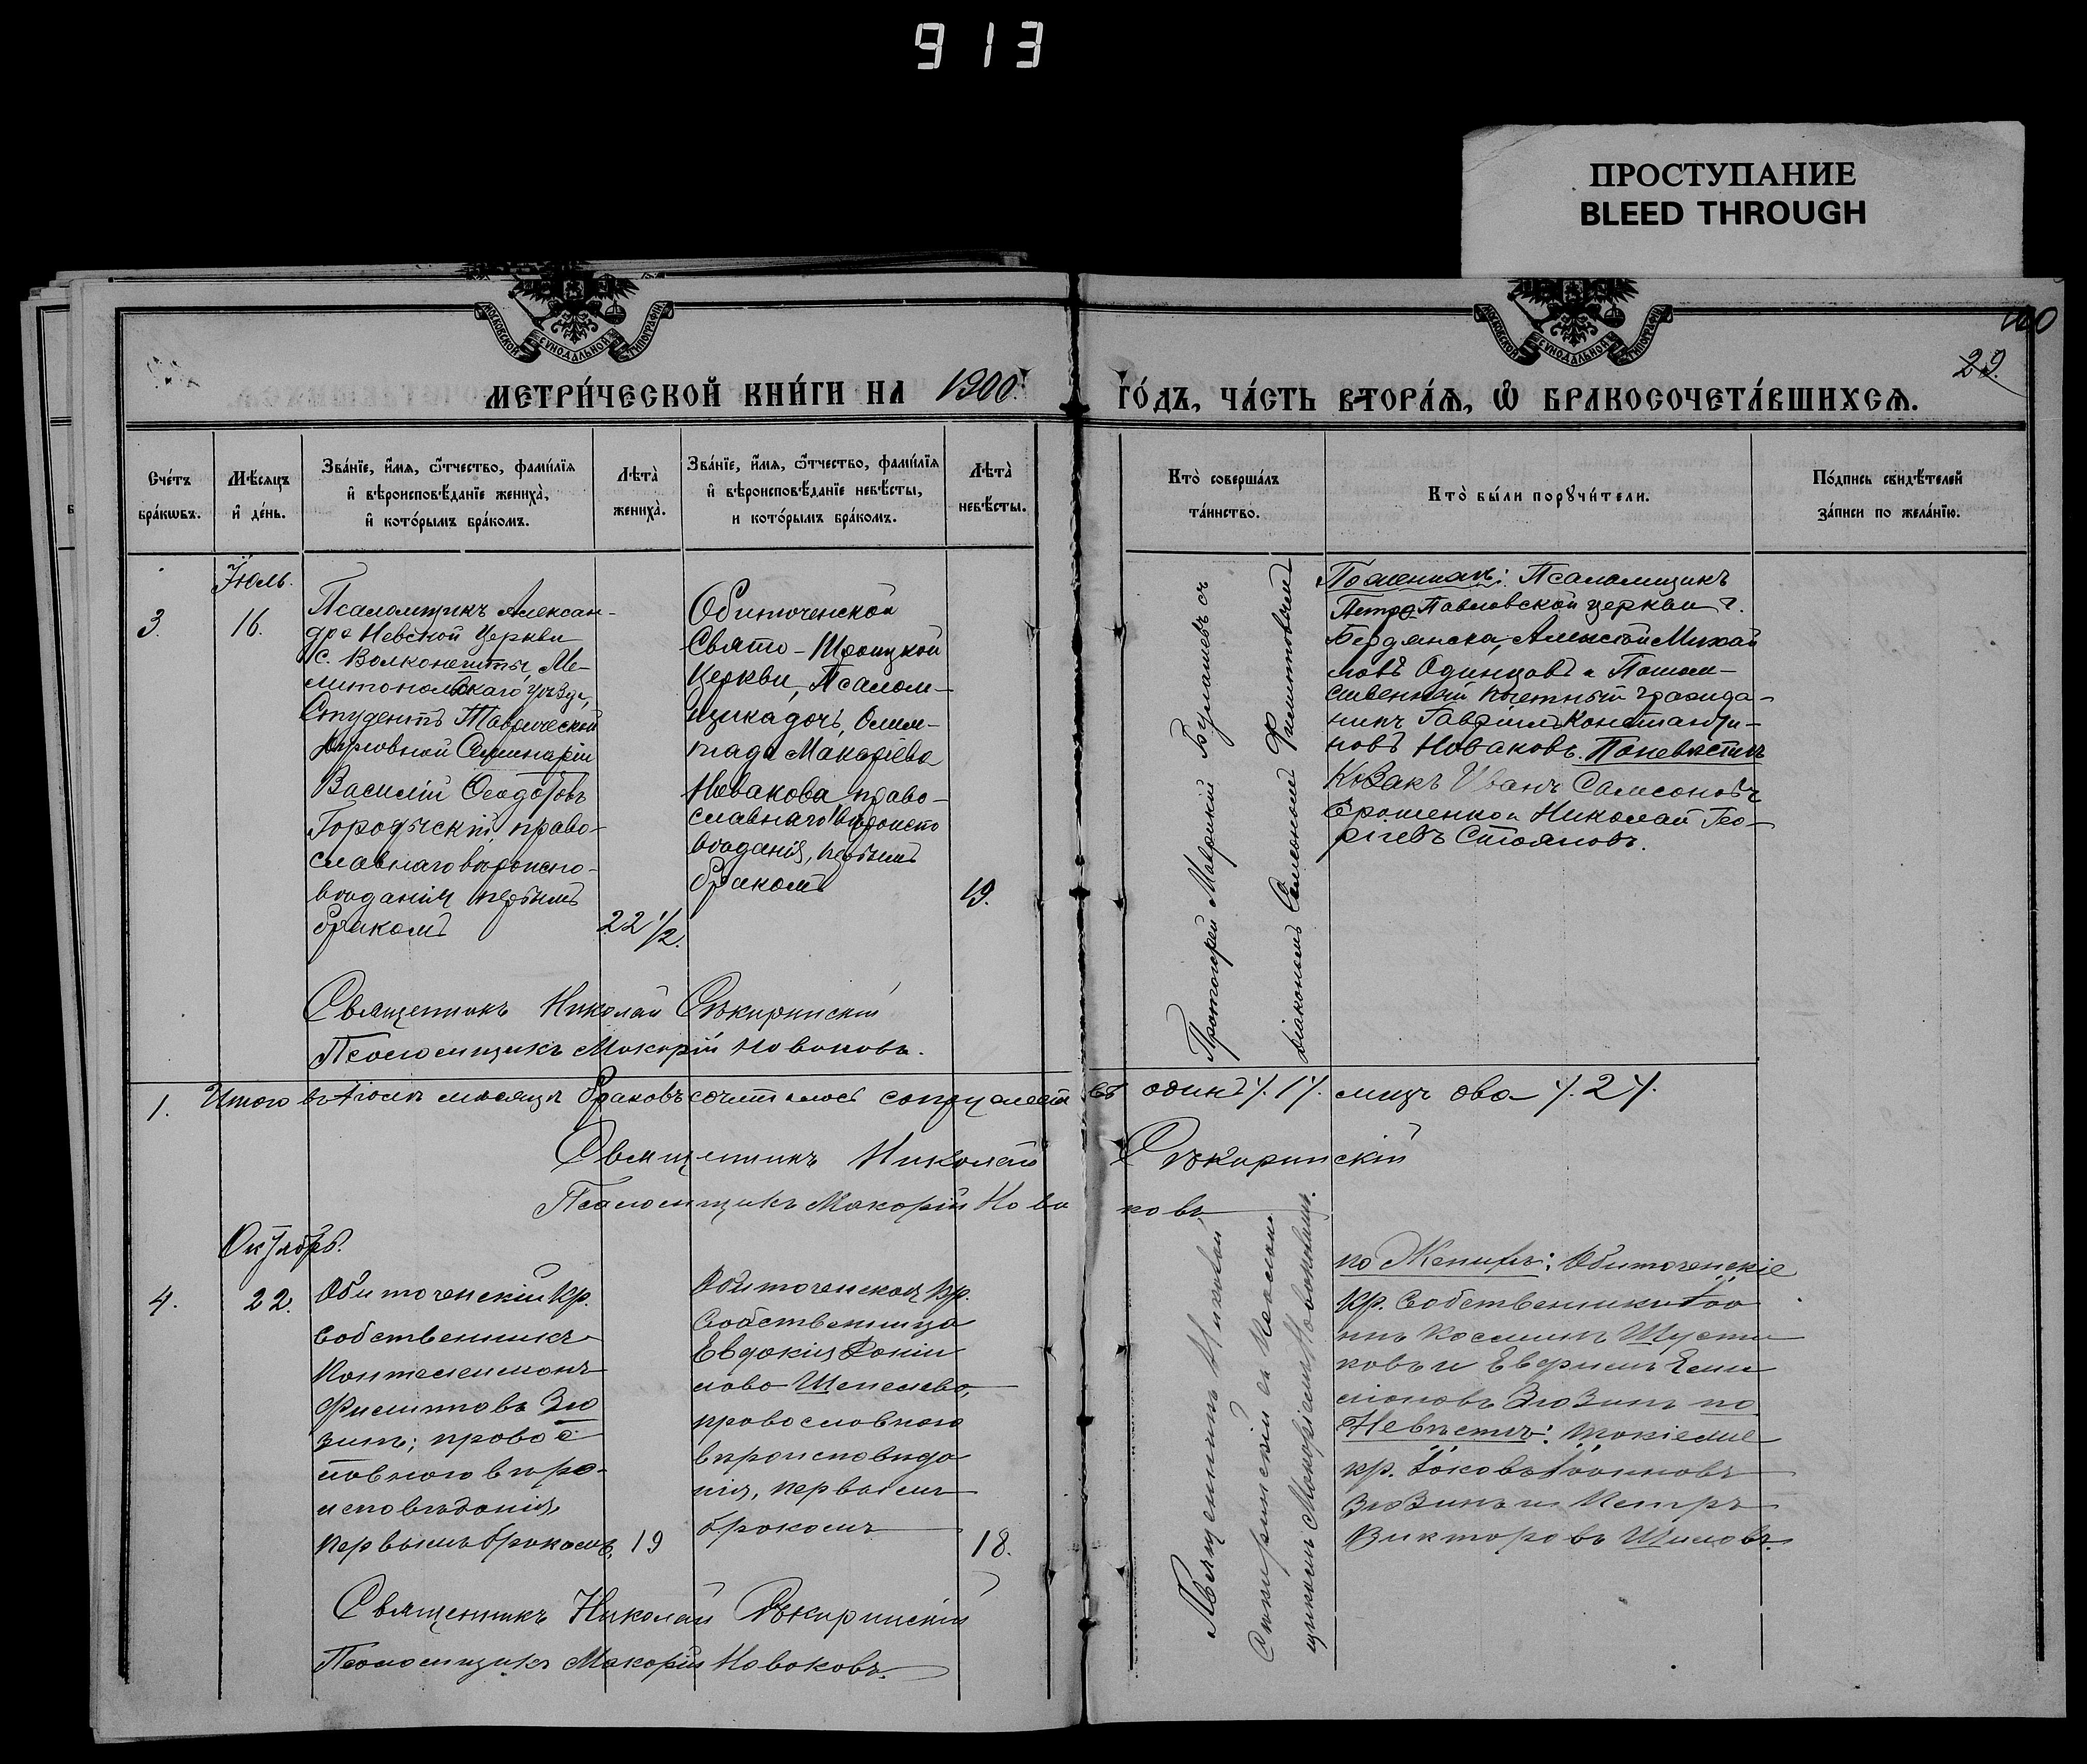 913
ПРОСТУПАНИЕ
BLEED THROUGH
МОСКОВСКОЙ СУНОДАЛЬНОЙ ТИПОГРАФІИ
МОСКОВСКОЙ СУНОДАЛЬНОЙ ТИПОГРАФІИ
29.
МЕТРИ́ЧЕСКОЙ КНИ́ГИ НА 1900 ГО́ДЪ, ЧА́СТЬ ВТОРА́Ѧ, Ѽ БРАКОСОЧЕТА́ВШИХСѦ.
Сче́тъ
бра́кѡвъ.
Мѣ́сѧцъ
и҆ де́нь.
Зва́нїе, и҆́мѧ, ѻ҆́тчество, фами́лїѧ
и҆ вѣроисповѣ́данїе жениха̀,
и҆ кото́рымъ бра́комъ.
Лѣта̀
жениха̀.
Зва́нїе, и҆́мѧ, ѻ҆́тчество, фами́лїѧ
и҆ вѣроисповѣ́данїе невѣ́сты,
и кото́рымъ бра́комъ.
Лѣта̀
невѣ́сты.
Кто̀ соверша́лъ
та́инство.
Кто̀ бы́ли порꙋчи́тели.
По́дпись свидѣ́телей
за́писи по жела́нїю.
Іюль.
3.
16.
Псаломщикъ Алексан-
дро Невской Церкви
с. Волконешты, Ме-
литопольскаго уѣзда,
Студентъ Таврической
Духовной Семинаріи
Василій Ѳеодоровъ
Городыскій, право-
славнаго вѣроиспо-
вѣданія первымъ
бракомъ
22 1/2.
Обиточенской
Свято-Троицкой
Церкви, Псалом-
щика дочь, Олим-
піада Макаріева
Новакова право-
славнаго вѣроиспо
вѣданія, первымъ
бракомъ
19.
Протоіерей Маврикій Бурлашевъ съ
діакономъ Симеономъ Филиповичемъ
По женихѣ: Псаломщикъ
Петро-Павловской церкви г.
Бердянска, Алексѣй Михай
ловъ Одинцовъ и Потом-
ственный почетный гражда-
нинъ Гавріилъ Константи-
новъ Новаковъ. По невѣстѣ
Козакъ Иванъ Самсоновъ
Ерошенко и Николай Гео-
ргіевъ Стояновъ.
Священникъ Николай Сѣкиринскій
Псаломщикъ Макарій Новаковъ.
1. Итого въ Іюлѣ мѣсяцѣ браковъ сочеталось супружествъ одинъ /.1/. лицъ два /.2/.
Священникъ Николай Сѣкиринскій
Псаломщикъ Макарій Новаковъ
Октябрь.
4.
22.
Обиточенскій Кр.
Собственникъ
Пантелеимонъ
Филиповъ Зю
зинъ; правос
лавного вѣро-
исповѣданія,
первымъ бракомъ,
19
Обиточенская Кр.
Собственница
Евдокія Дани
лова Шепелева,
православного
вѣроисповѣда
нія, первымъ
бракомъ
18.
Священникъ Николай
Сѣкиринскій съ Псалом
щикомъ Макаріемъ Новаковымъ.
по Женихѣ: Обиточенскіе
Кр. Собственники Іоа
ннъ Косминъ Шусти
ковъ и Евфимъ Еми
ліановъ Зюзинъ по
Невѣстѣ: Такіеже
кр. Іаковъ Іоанновъ
Зюзинъ и Петръ
Викторовъ Шиловъ.
Священникъ Николай Сѣкиринскій
Псаломщикъ Макарій Новаковъ.